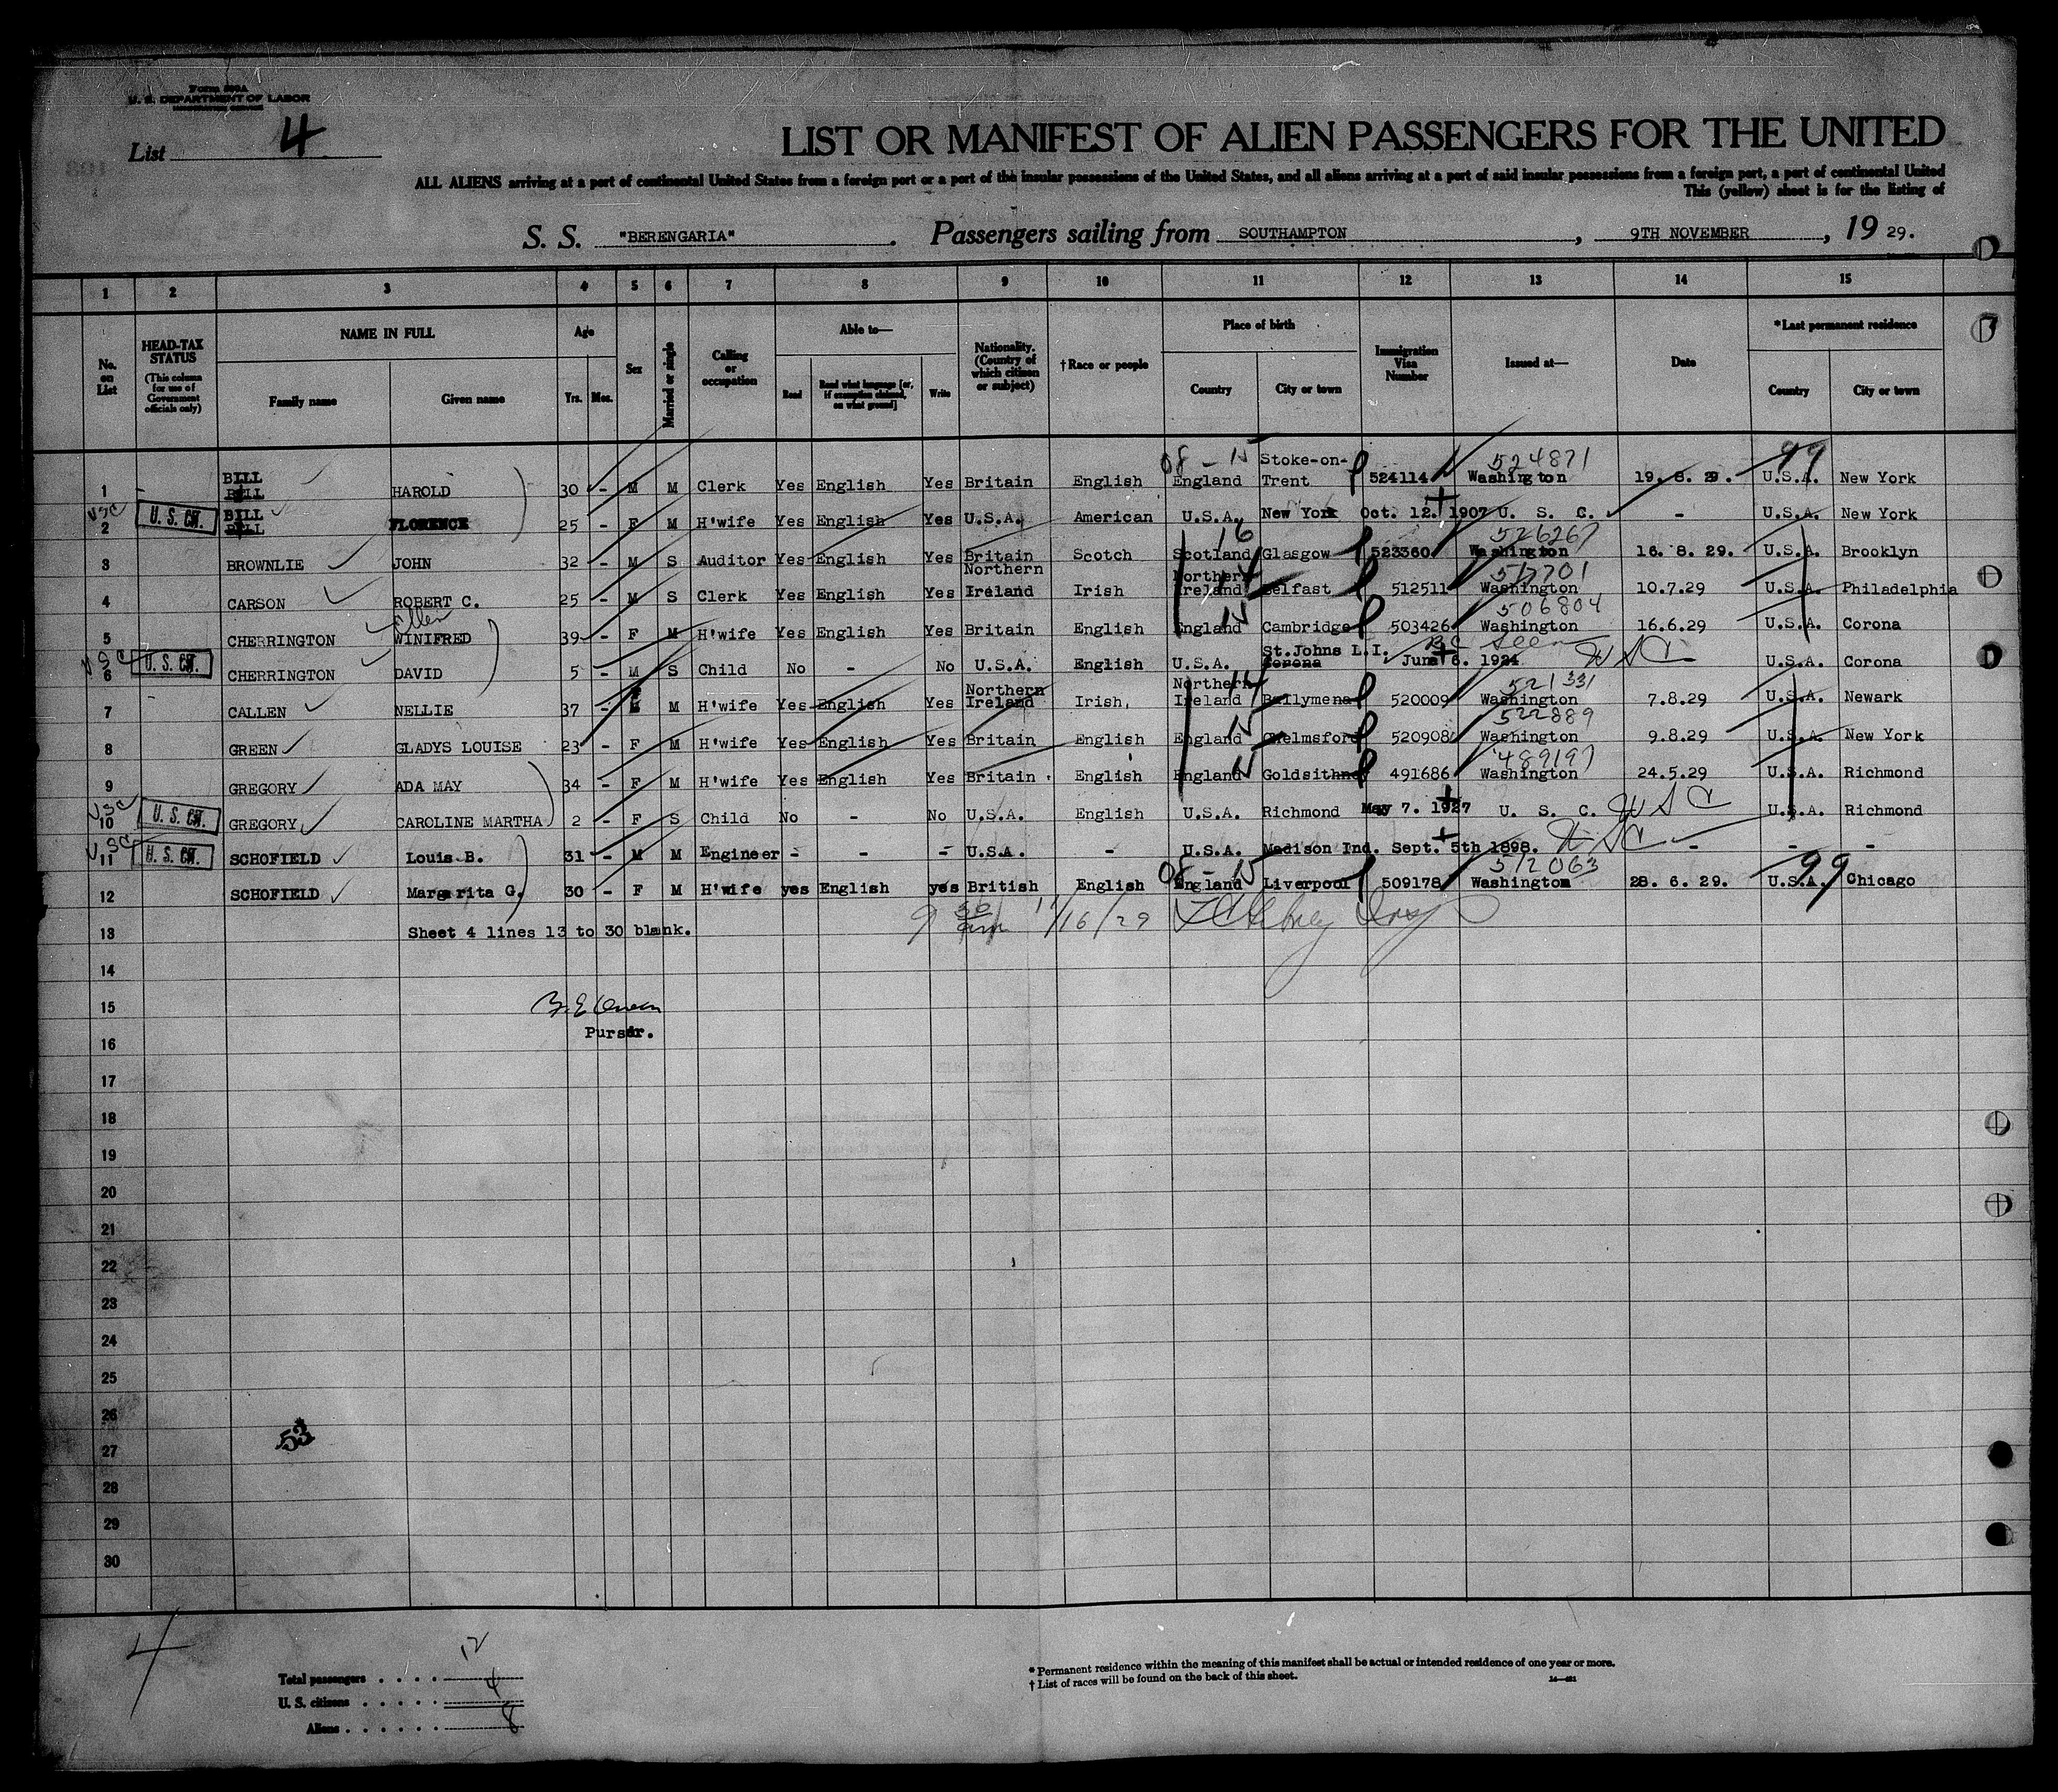 Form 500A
U. S. DEPARTMENT OF LABOR
List 4
LIST OR MANIFEST OF ALIEN PASSENGERS FOR THE UNITED
ALL ALIENS arriving at a port of continental United States from a foreign port or a port of the insular possessions of the United States, and all aliens arriving at a port of said insular possessions from a foreign port, a port of continental United
This (yellow) sheet is for the listing of
S. S. "BERENGARIA". Passengers sailing from SOUTHAMPTON, 9TH NOVEMBER, 19 29.
1 2 3 4 5 6 7 8 9 10 11 12 13 14 15
No. on List
HEAD-TAX STATUS (This column for use of Government officials only)
NAME IN FULL
Family name Given name
Age
Yrs. Mos.
Sex
Married or single
Calling or occupation
Able to—
Read Read what language [or, if exemption claimed, on what ground] Write
Nationality. (Country of which citizen or subject)
†Race or people
Place of birth
Country City or town
Immigration Visa Number
Issued at—
Date
*Last permanent residence
Country City or town
08 - 15 524871 99
1 BILL HAROLD 30 - M M Clerk Yes English Yes Britain English England Stoke-on-Trent 524114 Washington 19.8.29. U.S.A. New York
USC U. S. CIT.
2 BILL FLORENCE 25 - F M H'wife Yes English Yes U.S.A. American U.S.A. New York Oct. 12. 1907 U. S. C. - U.S.A. New York
16 526267
3 BROWNLIE JOHN 32 - M S Auditor Yes English Yes Britain Scotch Scotland Glasgow 523360 Washington 16.8.29. U.S.A. Brooklyn
14 517701
4 CARSON ROBERT C. 25 - M S Clerk Yes English Yes Northern Ireland Irish Northern Ireland Belfast 512511 Washington 10.7.29 U.S.A. Philadelphia
Ellen 15 506804
5 CHERRINGTON WINIFRED 39 - F M H'wife Yes English Yes Britain English England Cambridge 503426 Washington 16.6.29 U.S.A. Corona
USC U. S. CIT. BC seen USC
6 CHERRINGTON DAVID 5 - M S Child No - No U.S.A. English U.S.A. St.Johns L.I. Corona June 6. 1924 U.S.A. Corona
14 521331
7 CALLEN NELLIE 37 - F M H'wife Yes English Yes Northern Ireland Irish, Northern Ireland Ballymena 520009 Washington 7.8.29 U.S.A. Newark
15 522889
8 GREEN GLADYS LOUISE 23 - F M H'wife Yes English Yes Britain English England Chelmsford 520908 Washington 9.8.29 U.S.A. New York
15 489197
9 GREGORY ADA MAY 34 - F M H'wife Yes English Yes Britain English England Goldsithney 491686 Washington 24.5.29 U.S.A. Richmond
USC U. S. CIT. USC
10 GREGORY CAROLINE MARTHA 2 - F S Child No - No U.S.A. English U.S.A. Richmond May 7. 1927 U. S. C. U.S.A. Richmond
USC U. S. CIT. USC
11 SCHOFIELD Louis B. 31 - M M Engineer - - - U.S.A. - U.S.A. Madison Ind. Sept. 5th 1898. - - -
08 - 15 512063 99
12 SCHOFIELD Margarita G. 30 - F M H'wife yes English yes British English England Liverpool 509178 Washington 28.6.29. U.S.A. Chicago
13 Sheet 4 lines 13 to 30 blank. 11/16/29
14
15
Purser.
16
17
18
19
20
21
22
23
24
25
26
53
27
28
29
30
4
Total passengers . . . . 12
U. S. citizens . . . . . 4
Aliens . . . . . . 8
* Permanent residence within the meaning of this manifest shall be actual or intended residence of one year or more.
† List of races will be found on the back of this sheet.